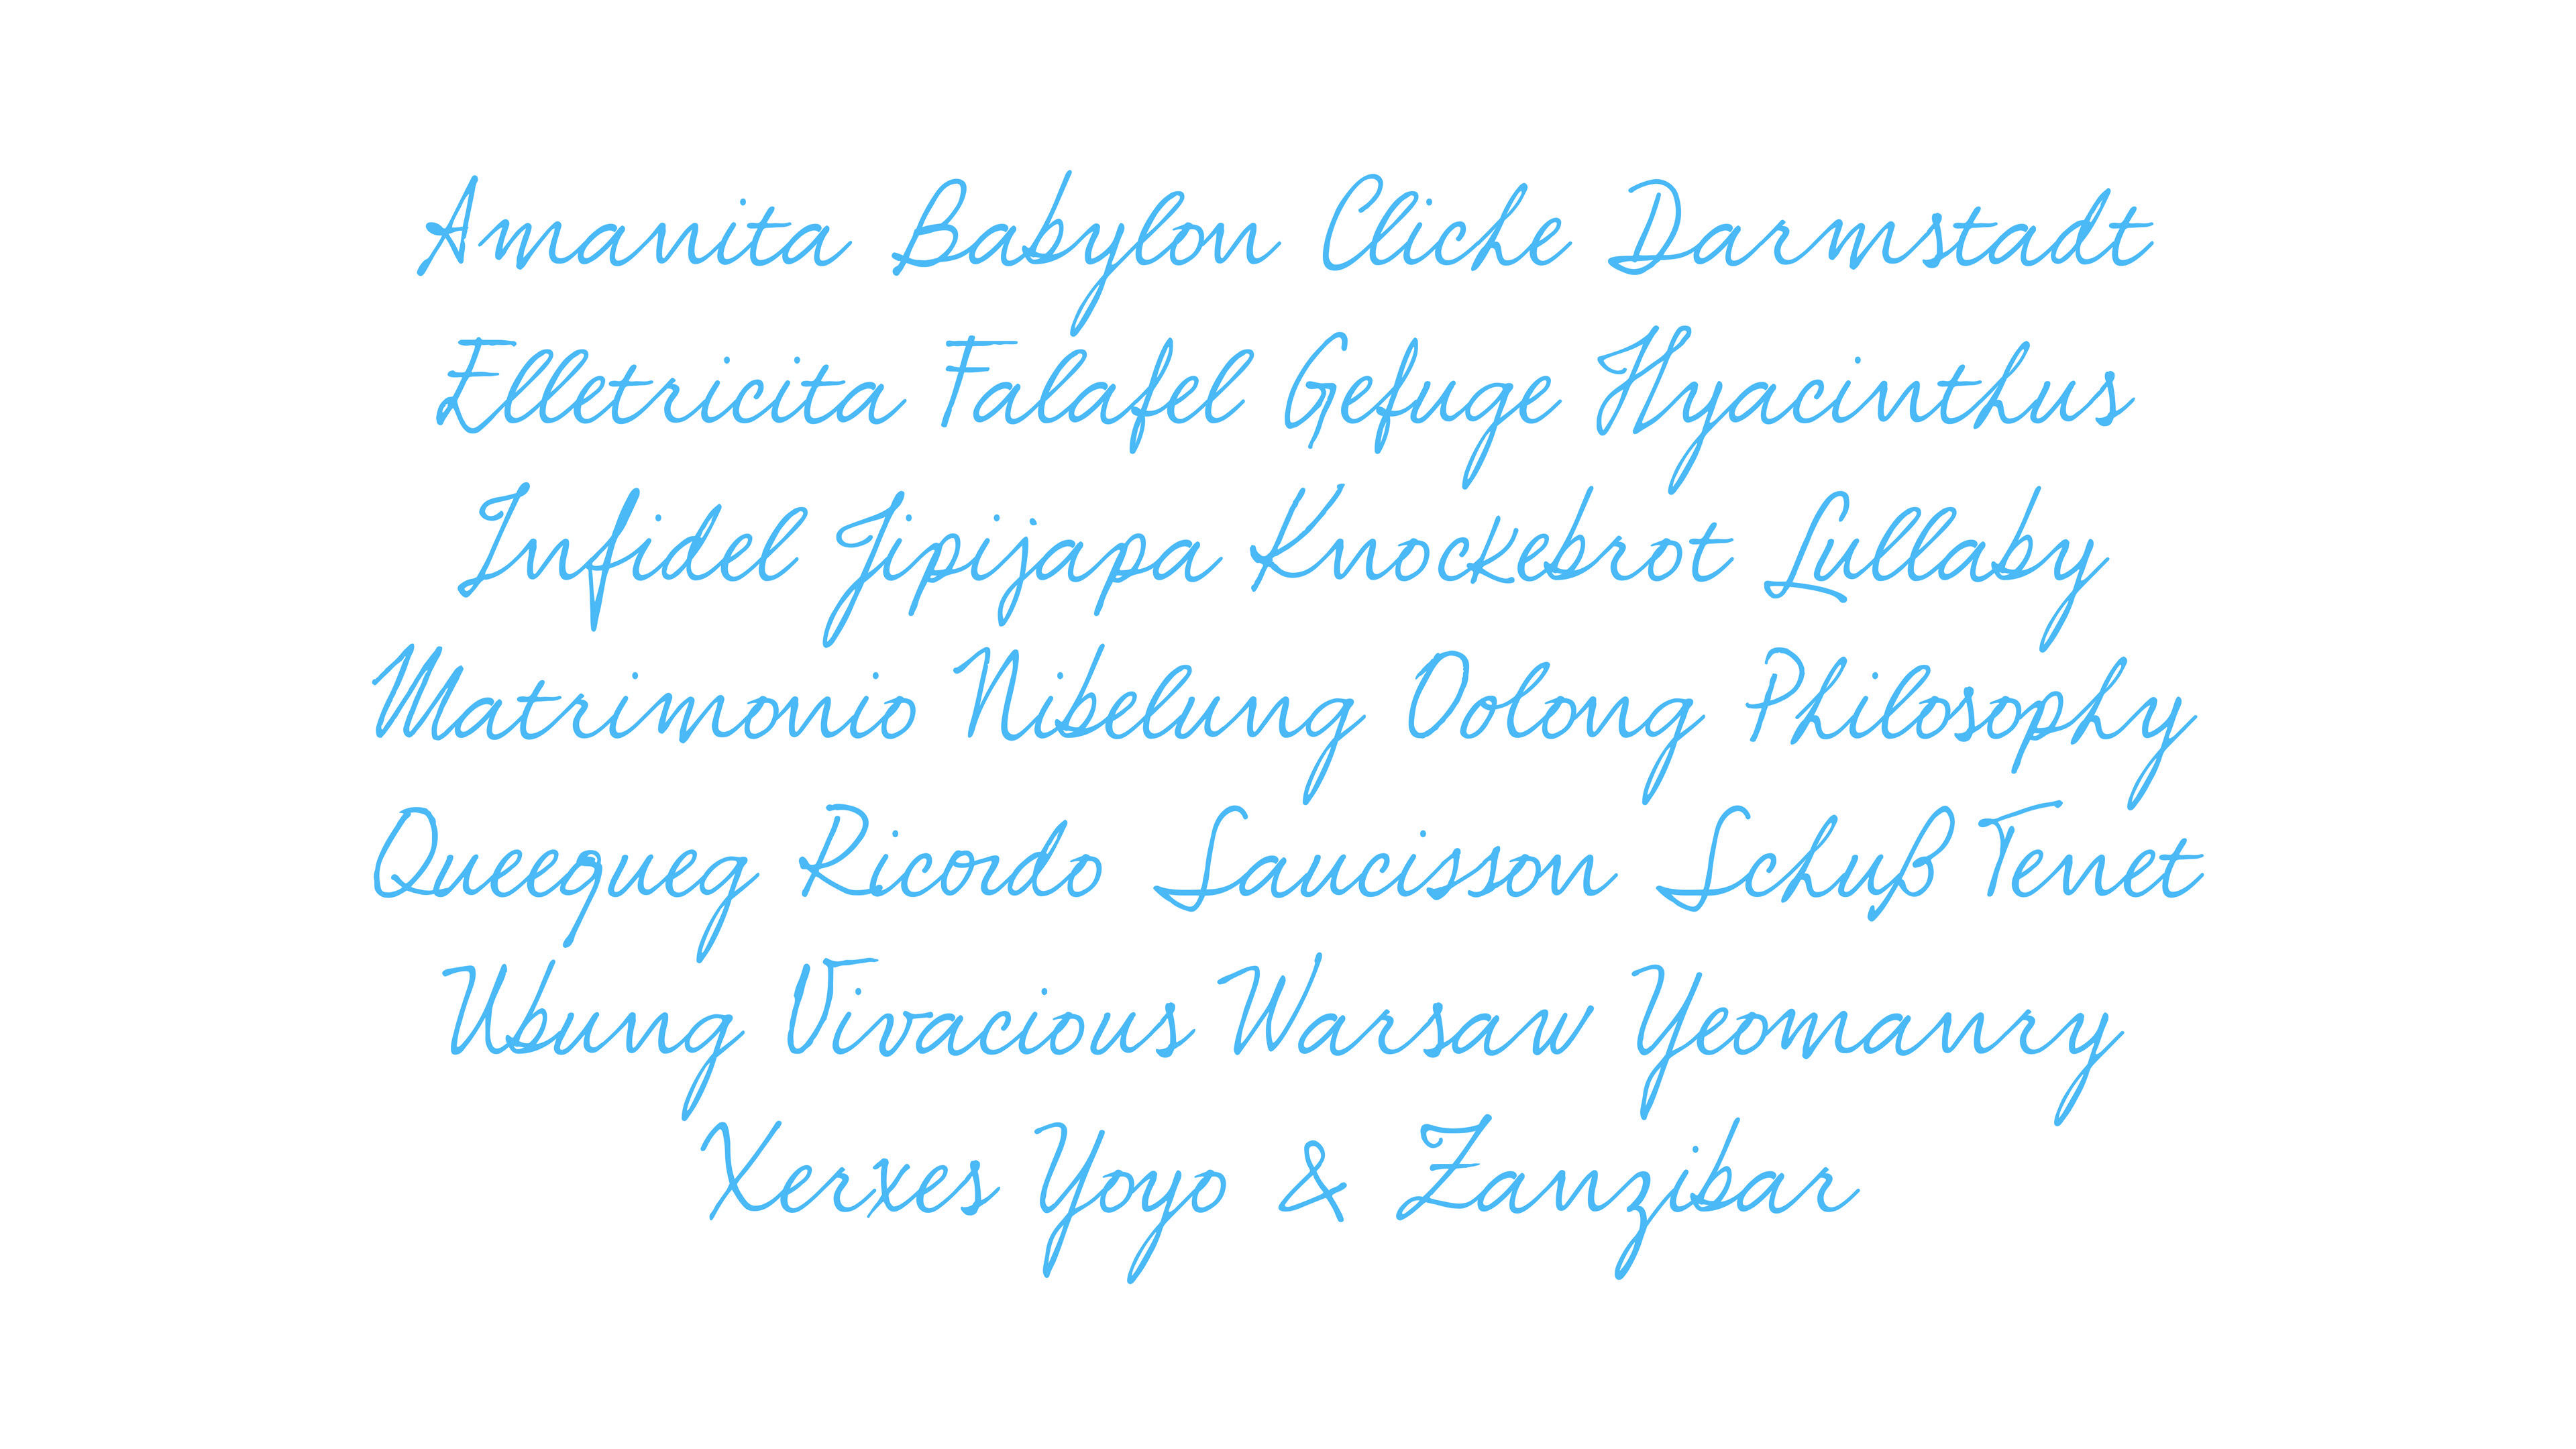 Amanita Babylon Cliche Darmstadt
Elletricita Falafel Gefuge Hyacinthus
Infidel Jipijapa Knockebrot Lullaby
Matrimonio Nibelung Oolong Philosophy
Queequeg Ricordo Saucisson Schuß Tenet
Ubung Vivacious Warsaw Yeomanry
Xerxes Yoyo & Zanzibar